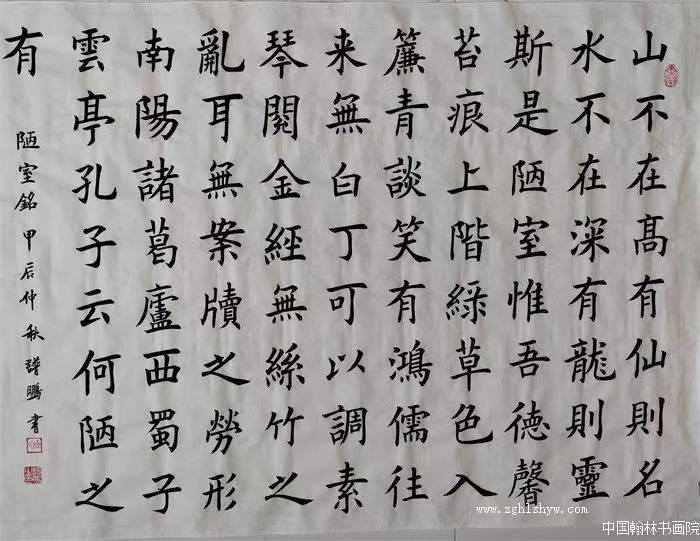 山不在高有仙則名
水不在深有龍則靈
斯是陋室惟吾德馨
苔痕上階綠草色入
簾青談笑有鴻儒往
来無白丁可以調素
琴閱金經無絲竹之
亂耳無案牘之勞形
南陽諸葛廬西蜀子
雲亭孔子云何陋之
有
陋室銘甲辰仲秋譜鵬書
www.zghlshyw.com
中国翰林书画院